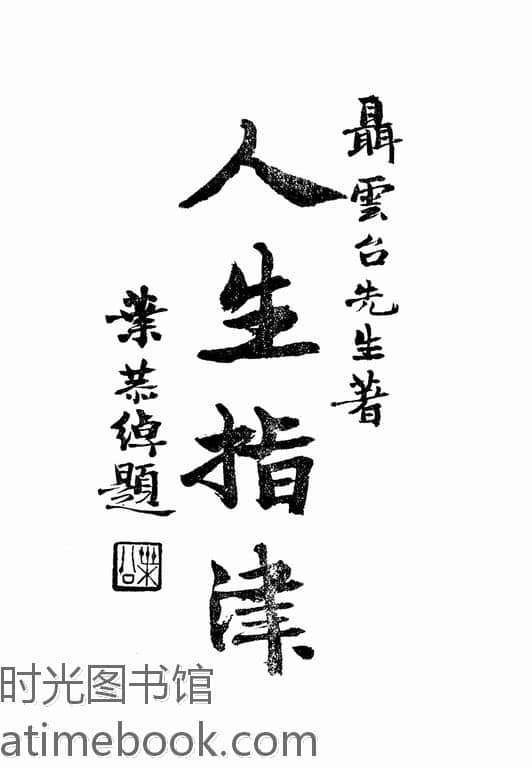 聶雲台先生著
人生指津
葉恭綽題
时光图书馆
atimebook.com